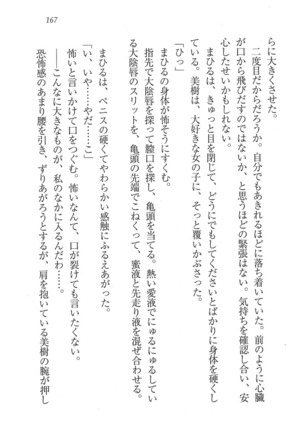 167
らに大きくさせた。
二度目だからだろうか。自分でもあきれるほどに落ち着いていた。前のように心臓
が口から飛びだすのではないか、と思うほどの緊張はない。気持ちを確認し合い、安
心したせいかもしれない。
まひるは、きゅっと目を閉じて、どうにでもしてくださいとばかりに身体を硬くし
ている。美樹は、大好きな女の子に、そっと覆いかぶさった。
「ひっ」
まひるの身体が怖そうにすくむ。
指先で大陰唇を探って膣口を探し、亀頭を当てる。熱い愛液でにゅるにゅるしてい
る大陰唇のスリットを、亀頭の先端でこねくって、蜜液と先走り液を混ぜ合わせる。
まひるは、ペニスの硬くてやわらかい感触にふるえあがった。
「い、いや……やだ……こ」
怖いと言いかけて口をつぐむ。怖いなんて、口が裂けても言いたくない。
――こんなに大きなものが、私のなかに入るんだわ……。
恐怖感のあまり腰を引き、ずりあがろうとするが、肩を抱いている美樹の腕が押し